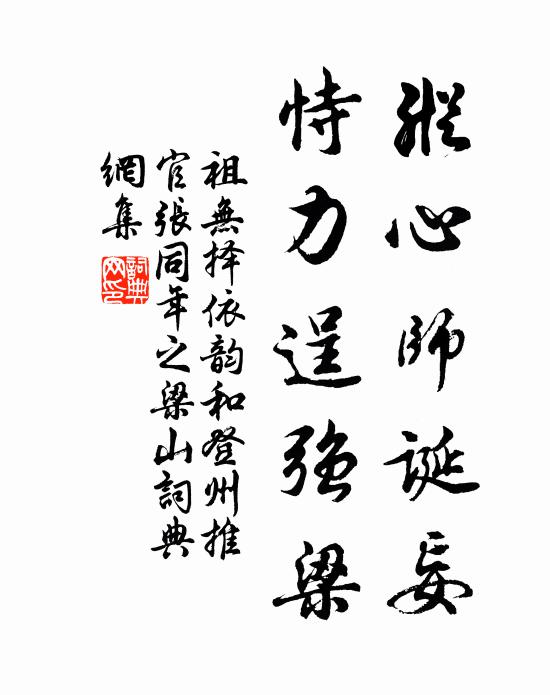 縱心師誕妄
恃力逞強梁
祖無择依韵和登州推
官張同年之梁山詞典
網集
詞典網印